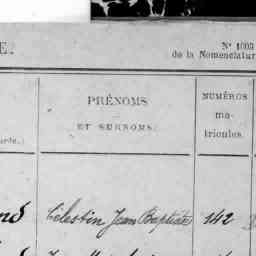 E.
N° 1003
de la Nomenclatur
PRÉNOMS
ET SURNOMS.
NUMÉROS
ma-
tricules.
Célestin Jean Baptiste 142